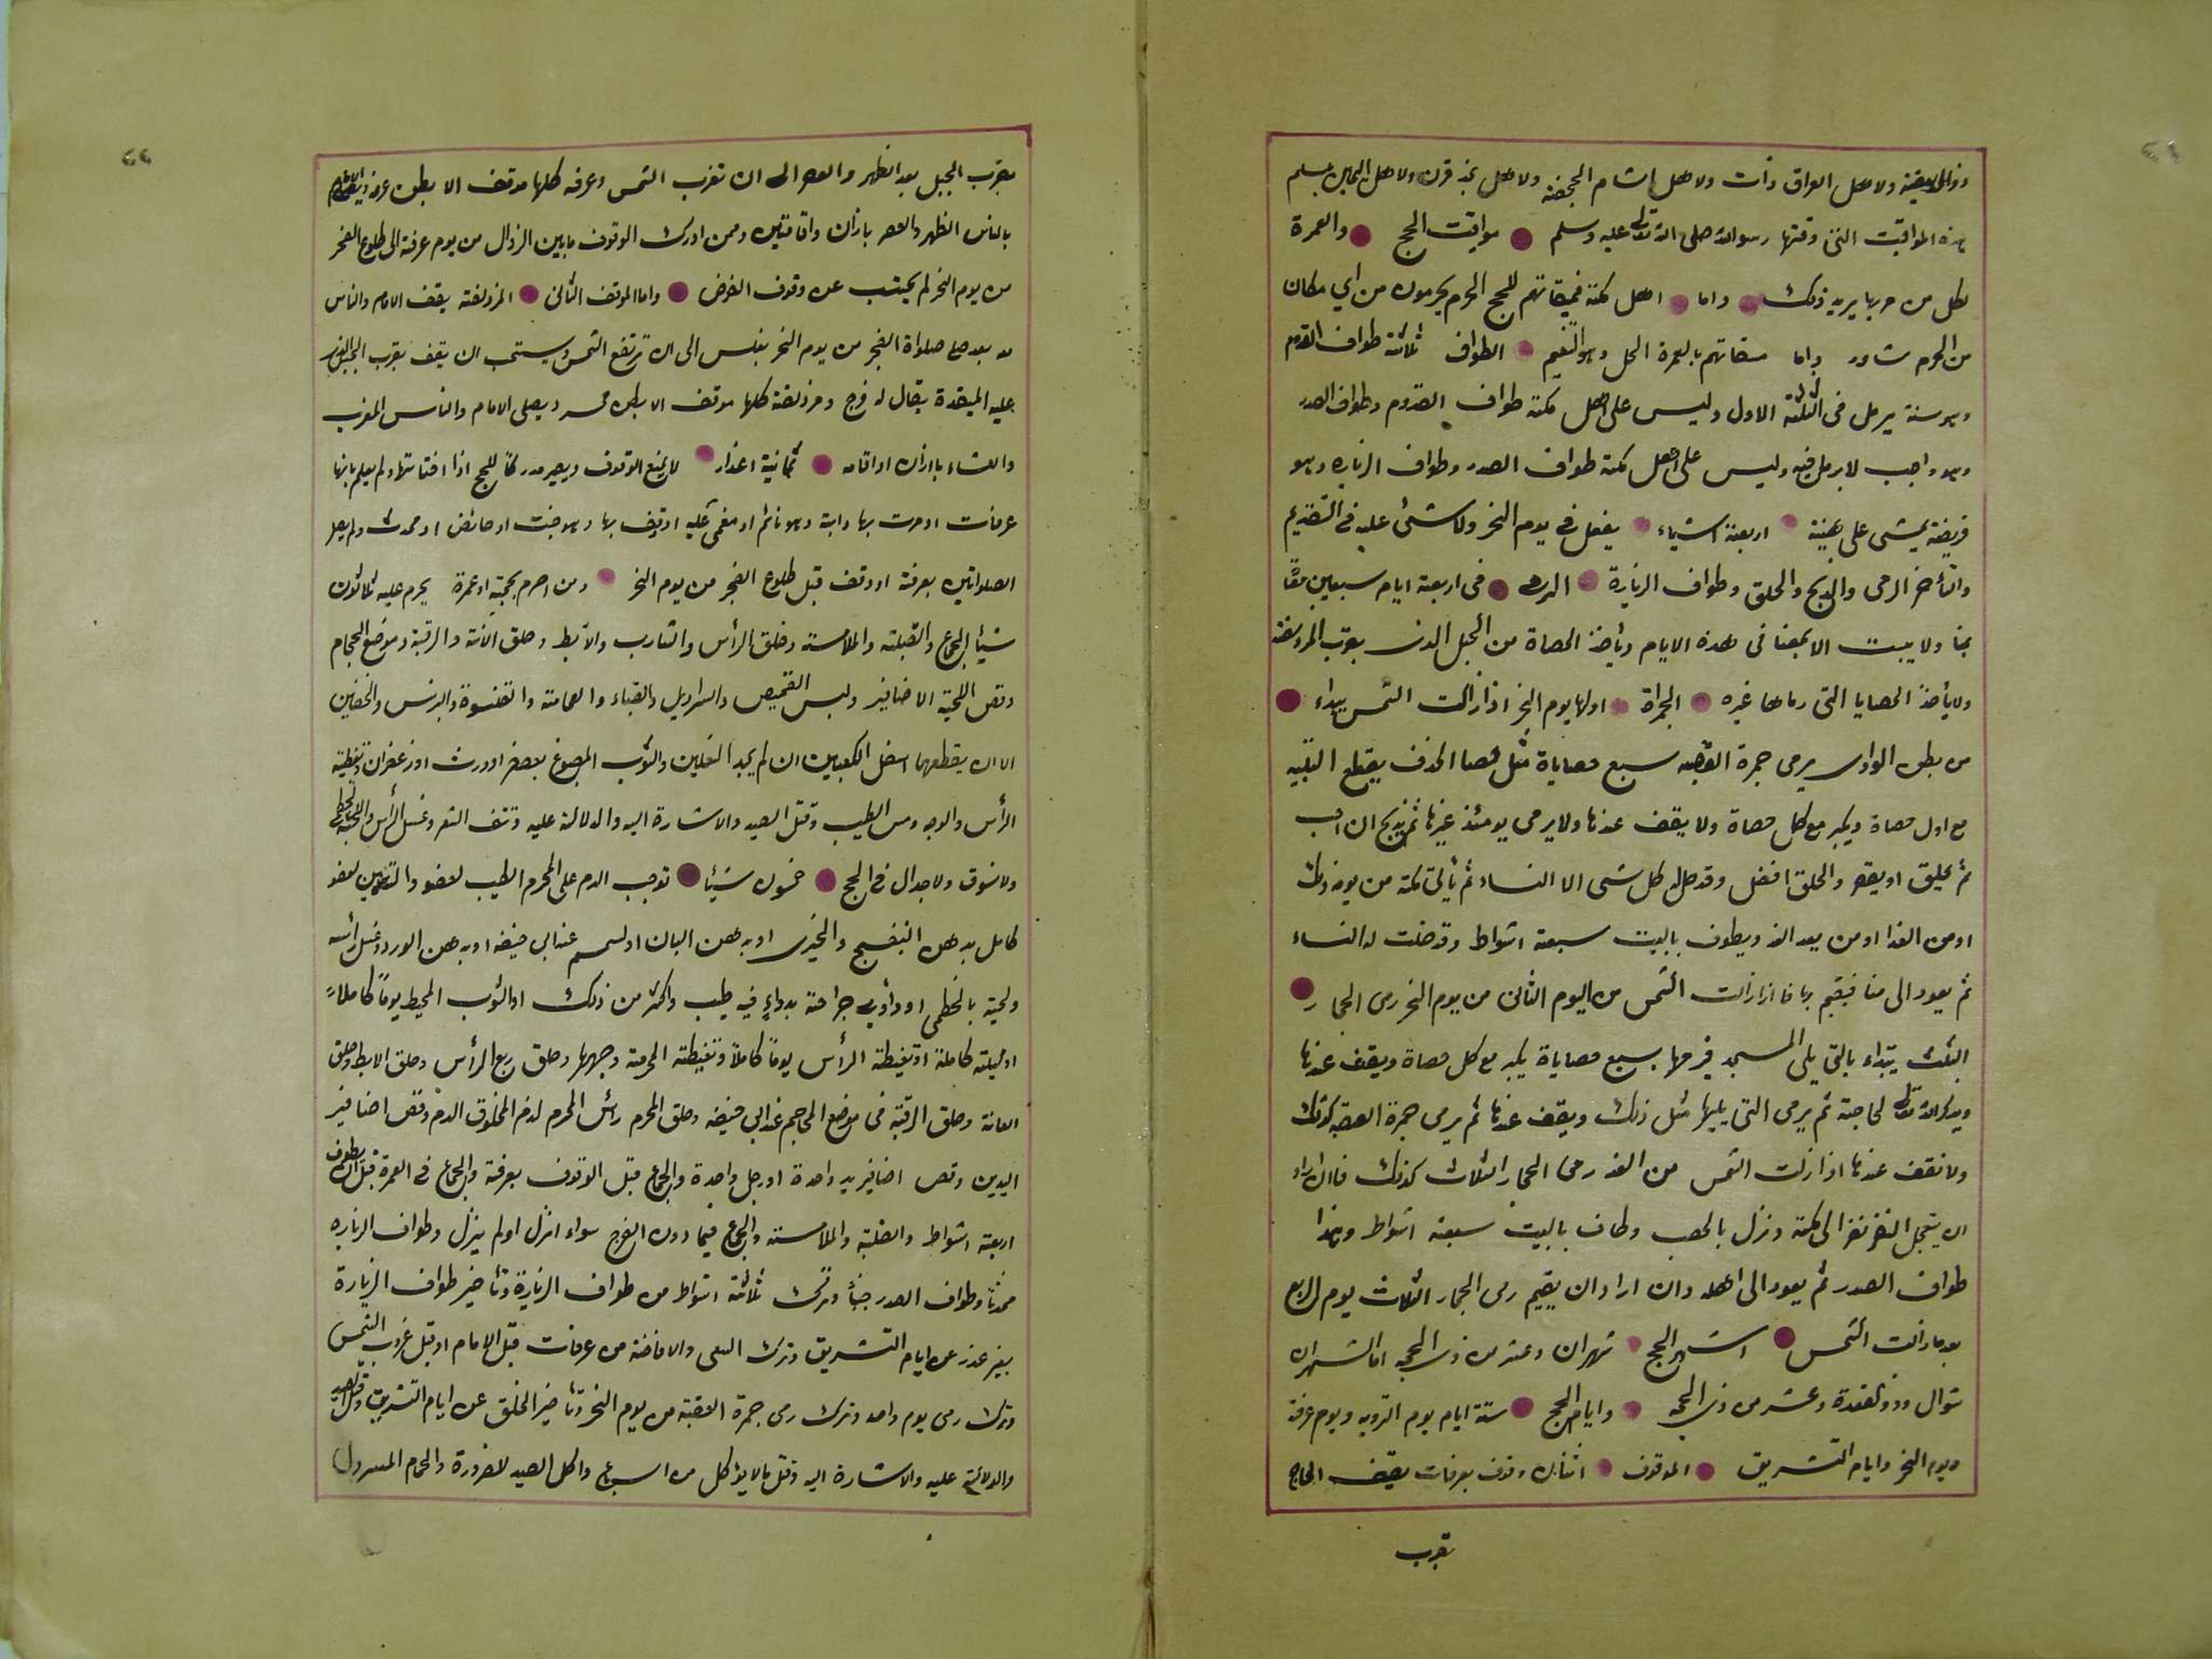 ذو الحليفة ولاهل العراق ذات ولاهل الشام الجحفة ولاهل نجد قرن ولاهل اليمن يلملم
هذه المواقيت التى وقتها رسول الله صلى الله تعالى عليه وسلم مواقيت الحج والعمرة
لكل من مر بها يريد ذلك واما اهل مكة فميقاتهم للحج الحرم يحرمون من اي مكان
من الحرم شاؤ واما ميقاتهم بالعمرة الحل وهو التنعيم الطواف ثلاثة طواف القدوم
وهو سنة يرمل فى الثلثة الاول وليس على اهل مكة طواف القدوم وطواف الصدر
وهو واجب لا يرمل فيه وليس على اهل مكة طواف الصدر وطواف الزياره وهو
فريضة يمشى على هينة اربعة اشياء يفعل فى يوم النحر ولا شئ عليه فى التقديم
والتأخير الرمى والذبح والحلق وطواف الزيارة الرمى فى اربعة ايام سبعين
بمنا ولا يبيت الا بمنا فى هذه الايام ويأخذ الحصاة من الجبل الذى بقرب المزدلفة
ولا يأخذ الحصايا التى رماها غيره الجمرة اولها يوم النحر اذا زالت الشمس يبداء
من بطن الوادى يرمى جمرة العقبه سبع حصاياة مثل حصا الخذف يقطع التلبيه
مع اول حصاة ويكبر مع كل حصاة ولا يقف عندها ولا يرمى يومئذ غيرها ثم يذبح ان احب
ثم يحلق او يقصر والحلق افضل وقد حل له كل شى الا النساء ثم يأتى مكة من يومه ذلك
او من الغد او من بعد الغد ويطوف بالبيت سبعة اشواط وقد حلت له النساء
ثم يعود الى منا فيقيم بها فاذا زالت الشمس من اليوم الثانى من يوم النحر رمى الجمار
الثلث يبتداء بالتى يلى المسجد فيرمها بسبع حصاياة يكبر مع كل حصاة ويقف عندها
ويدكر الله تعالى لحاجته ثم يرمى التى يليها مثل ذلك ويقف عندها ثم يرمى جمرة العقبه كذلك
ولا تقف عندها اذا زلت الشمس من الغد رمى الجمار الثلاث كذلك فان اراد
ان يتعجل النفر نفر الى مكة ونزل بالحصب وطاف بالبيت سبعة اشواط وهذا
طواف الصدر ثم يعود الى اهله وان اراد ان يقيم رمى الجمار الثلاث يوم الرابع
بعد ما زالت الشمس اشهر الحج شهران وعشر من ذى الحجه اما الشهران
شوال وذو القعدة وعشر من ذى الحجه وايام الحج ستة ايام يوم الترويه ويوم عرفة
ويوم النحر وايام التشريق الموقوف اثنان وقوف بعرفات يقف الحاج
بقرب
بقرب الجبل بعد الظهر والعصر الى ان تغرب الشمس وعرفه كلها موقف الا بطن عرنة ويصلى الامام
بالناس الظهر والعصر باذان واقامتين ومن ادرك الوقوف مابين الزوال من يوم عرفة الى طلوع الفجر
من يوم النحر لم يجتنب عن وقوف الفرض واما الموقف الثانى المزدلفة يقف الامام والناس
بعد صلواة الفجر من يوم النحر بغلس الى ان ترتفع الشمس ويستحب ان يقف بقرب الجبل الذى
عليه الميقدة يقال له قزح ومزدلفة كلها موقف الا بطن محسر ويصلى الامام والناس المغرب
والعشاء باذان او اقامه ثمانية اعذار لا يمنع الوقوف ويصير مدركا للحج اذا افتاتها ولم يعلم بانها
عرفات او مرت بها دابة وهو نائم او مغمى عليه او وقف بها وهو جنب او حائض او محدث ولم يصل
الصلواتين بعرفة او وقف قبل طلوع الفجر من يوم النحر ومن احرم بحجة او عمرة يحرم عليه ثلاثون
شيأ الجماع والقبلة والملامسة وحلق الرأس والشارب والابط وحلق العانة والرقبة وموضع الحجام
وقص اللحية الاضافير ولبس القميص والسراويل والقباء والعمامة والقلنسوة والبرنس والخفين
الا ان يقطعهما اسفل الكعبين ان لم يجد النعلين والثوب المصبوغ بعصفر او ورث او زعفران وتغطية
الرأس والوجه ومس الطيب وقتل الصيد والاشارة اليه والدلالة عليه ونتف الشعر وغسل الرأس واللحية بالخطمى
ولا فسوق ولا جدال فى الحج خمسون شيأ توجب الدم على المحرم الطيب لعضو والتدهين لعضو
كامل بدهن البنفسج والخيرى او بدهن البان او لسمسم عند ابى حنيفه او بدهن الورد وغسل رأسه
ولحية بالخطمى او داوى جراحة بدواء فيه طيب واكثر من ذلك او الثوب المخيط يوما كاملا
او ليلة كاملة او تغيطة الرأس يوما كاملا وتغيطة المحرمة وجهها وحلق ربع الرأس وحلق الابط وحلق
العانة وحلق الرقبة فى موضع المحاجم عند ابى حنيفه وحلق المحرم رأس المحرم لدم المحلوق الدم وقص اضافير
اليدين وقص اضافير يد واحدة او رجل واحدة والجماع قبل الوقوف بعرفة والجماع فى العمرة قبل ان يطوف
اربعة اشواط والقبلة والملامسة والجماع فيما دون الفرج سواء انزل اولم ينزل وطواف الزياره
محدثا وطواف الصدر جنبا وترك ثلاثة اشواط من طواف الزيارة وتأخير طواف الزيارة
بغير عذر عن ايام التشريق وترك السعى والافاضة من عرفات قبل الامام او قبل غروب الشمس
وترك رمى يوم واحد وترك رمى جمرة العقبة من يوم النحر وتأخير الحلق عن ايام التشريق وقتل الصيد
والدلالة عليه والاشارة اليه وقتل مالا يؤكل من السباع واكل الصيد لضرورة والحمام المسرول